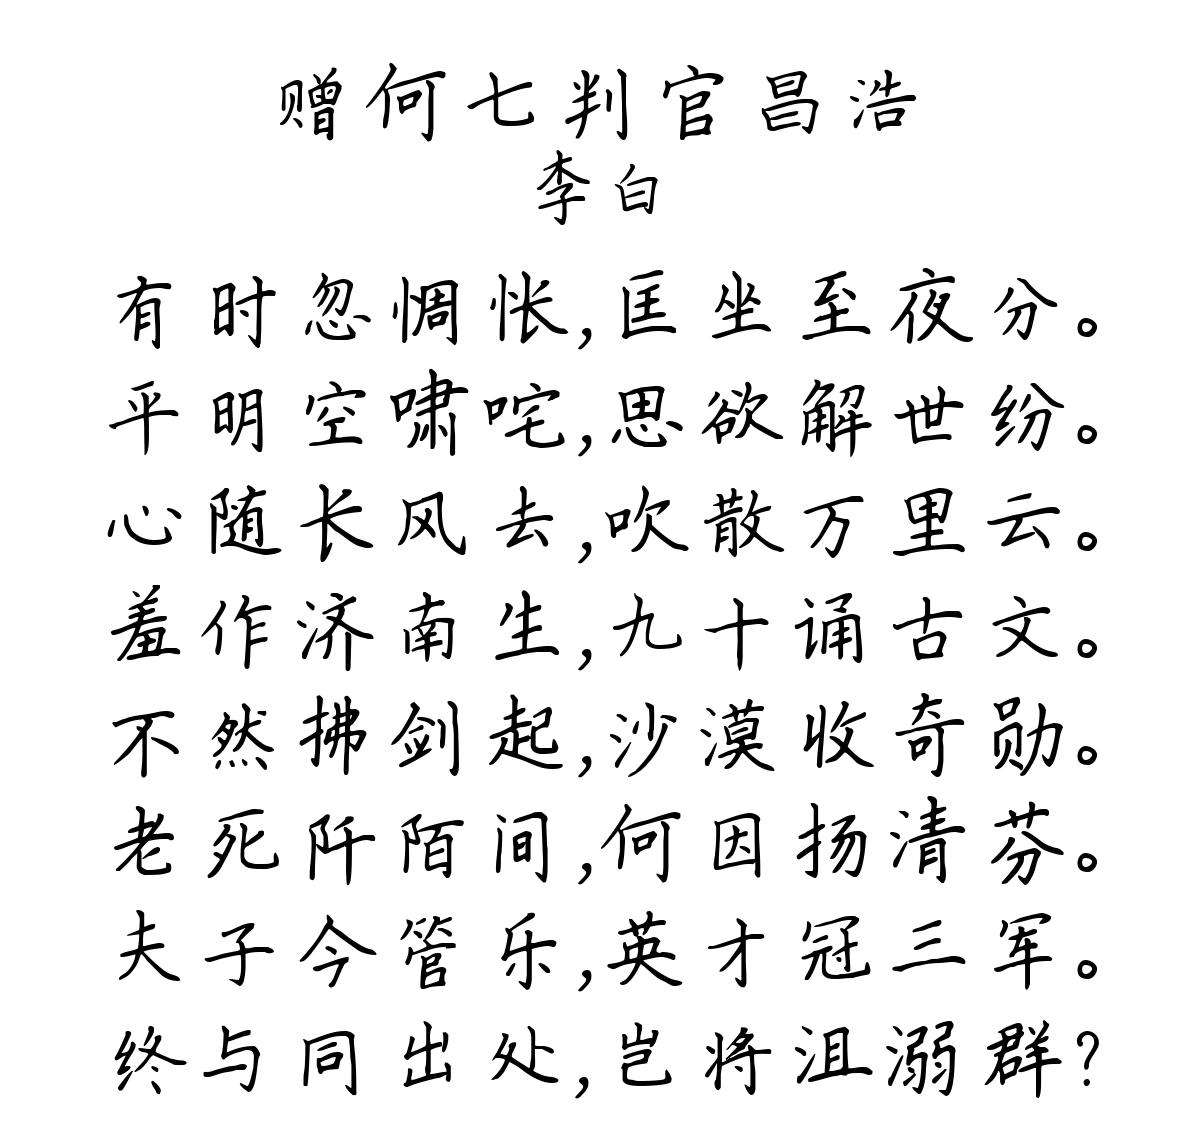 赠何七判官昌浩
李白
有时忽惆怅,匡坐至夜分。
平明空啸咤,思欲解世纷。
心随长风去,吹散万里云。
羞作济南生,九十诵古文。
不然拂剑起,沙漠收奇勋。
老死阡陌间,何因扬清芬。
夫子今管乐,英才冠三军。
终与同出处,岂将沮溺群?